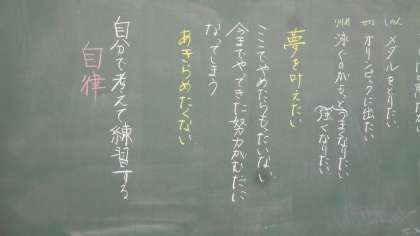 メダルをとりたい
オリンピックに出たい
泳ぐのがもっとうまくなりたい
強くなりたい
夢を叶えたい
ここでやめたらもったいない
今までやってきた努力がむだに
なってしまう
あきらめたくない
自分で考えて練習する
自律